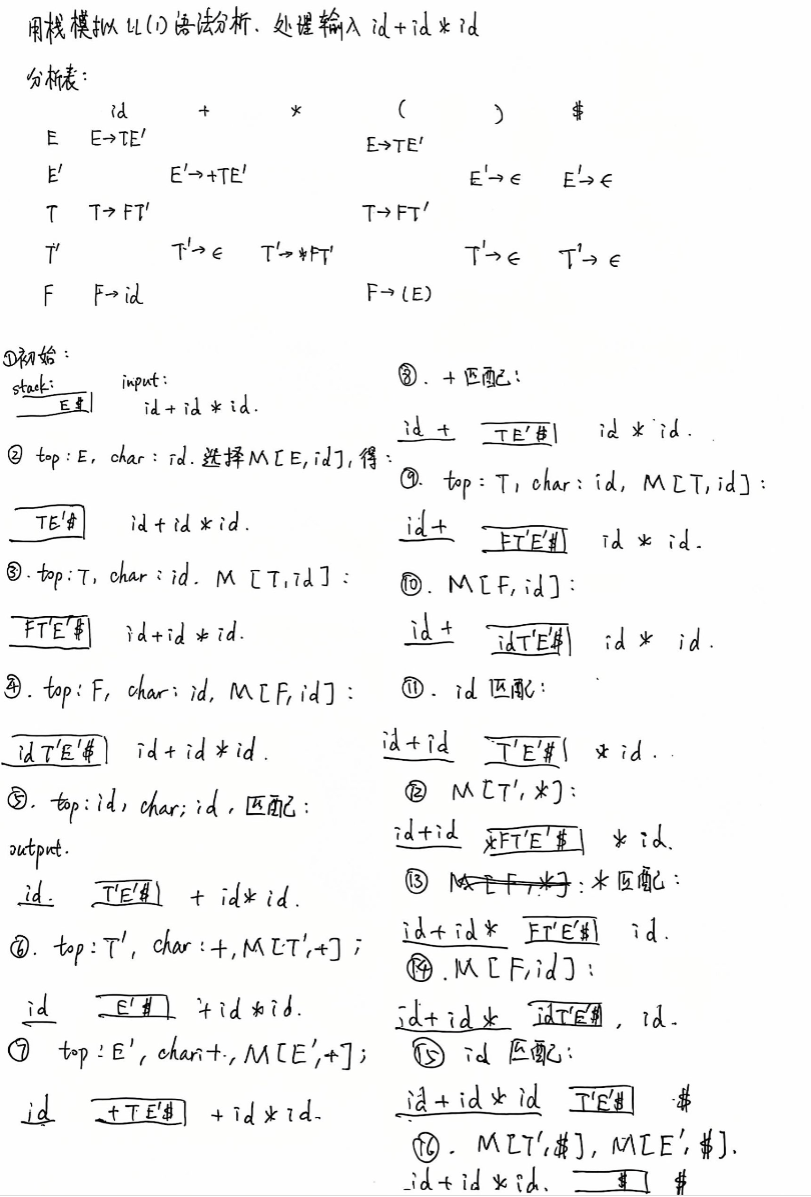 用栈模拟LL(1)语法分析. 处理输入 id+id*id
分析表:
id + * ( ) $
E E→TE' E→TE'
E' E'→+TE' E'→ϵ E'→ϵ
T T→FT' T→FT'
T' T'→ϵ T'→*FT' T'→ϵ T'→ϵ
F F→id F→(E)
①初始:
stack: input:
E$ id+id*id.
② top:E, char:id. 选择M[E,id],得:
TE'$ id+id*id.
③. top:T, char:id. M[T,id]:
FT'E'$ id+id*id.
④. top:F, char:id, M[F,id]:
idT'E'$ id+id*id.
⑤. top:id, char;id, 匹配:
output.
id. T'E'$ + id*id.
⑥. top:T', char:+, M[T',+];
id E'$ +id*id.
⑦ top:E', char:+, M[E',+];
id +TE'$ +id*id.
⑧. +匹配:
id + TE'$ id * id.
⑨. top:T, char:id, M[T,id]:
id+ FT'E'$ id * id.
⑩. M[F,id]:
id+ idT'E'$ id * id.
⑪. id 匹配:
id+id T'E'$ * id.
⑫ M[T',*]:
id+id *FT'E'$ * id.
⑬ M[F,*]: *匹配:
id+id* FT'E'$ id.
⑭. M[F,id]:
id+id* idT'E'$, id.
⑮ id 匹配:
id+id*id T'E'$ $
⑯. M[T',$], M[E',$].
id+id*id. $ $